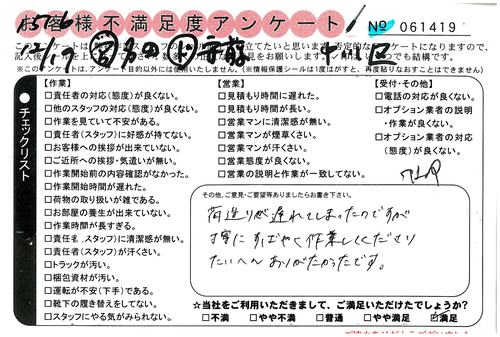 お客様不満足度アンケート!
No 061419
12/19
立てたいと思います。否定的なアンケートになりますので、
記入後
つでも結構です。
※このアンケートは、アンケート目的以外には使用いたしません。(※情報保護シールは1度はがすと、再度貼りなおすことはできません)
●チェックリスト
【作業】
□責任者の対応(態度)が良くない。
□他のスタッフの対応(態度)が良くない。
□作業を見ていて不安がある。
□責任者(スタッフ)に好感が持てない。
□お客様への挨拶が出来ていない。
□ご近所への挨拶・気遣いが無い。
□作業開始前の内容確認がなかった。
□作業開始時間が遅れた。
□荷物の取り扱いが雑である。
□お部屋の養生が出来ていない。
□作業時間が長すぎる。
□責任者(スタッフ)に清潔感が無い。
□責任者(スタッフ)が汗くさい。
□トラックが汚い。
□梱包資材が汚い。
□運転が不安(下手)である。
□靴下の履き替えをしてない。
□スタッフにやる気がみられない。
【営業】
□見積もり時間に遅れた。
□見積もり時間が長い。
□営業マンに清潔感が無い。
□営業マンが煙草くさい。
□営業マンが汗くさい。
□営業態度が良くない。
□営業の説明と作業が一致してない。
【受付・その他】
□電話の対応が良くない。
□オプション業者の説明
・作業が良くない。
□オプション業者の対応
(態度)が良くない。
その他、ご意見・ご要望等ありましたらお書き下さい。
荷造りが遅れてしまったのですが
丁寧に すばやく作業してくださり
たいへん ありがたかったです。
☆当社をご利用いただきまして、ご満足いただけたでしょうか?
□不満 □やや不満 □普通 □やや満足 ☑満足